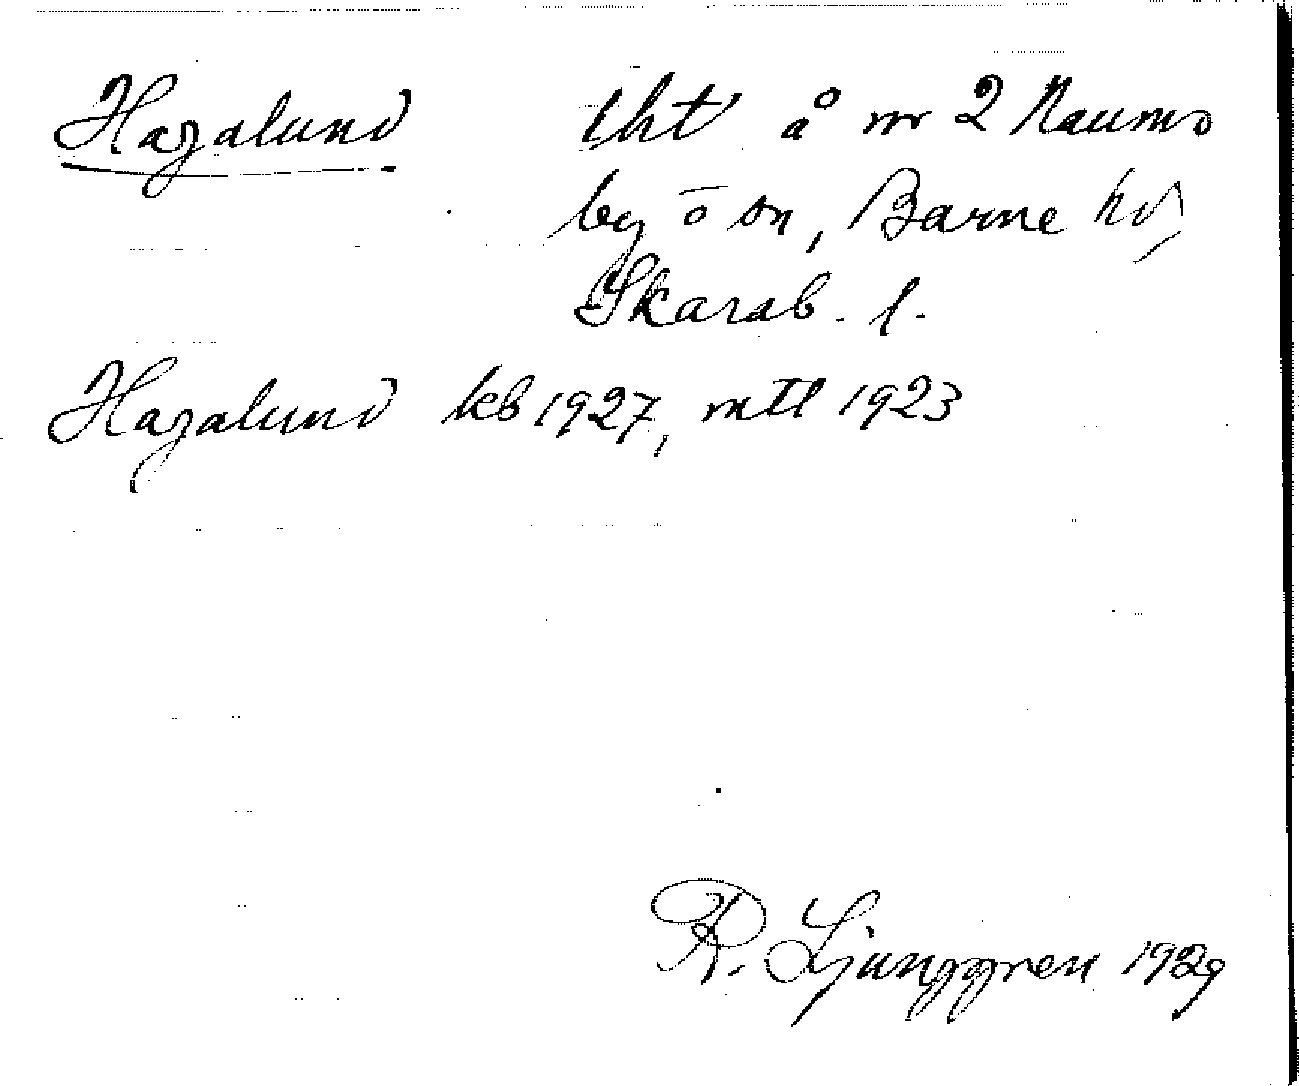 Hagalund lht å nr 2 Naums
by o sn, Barne hd,
Skarab. l.
Hagalund kb 1927, mtl 1923
R. Ljunggren 1929